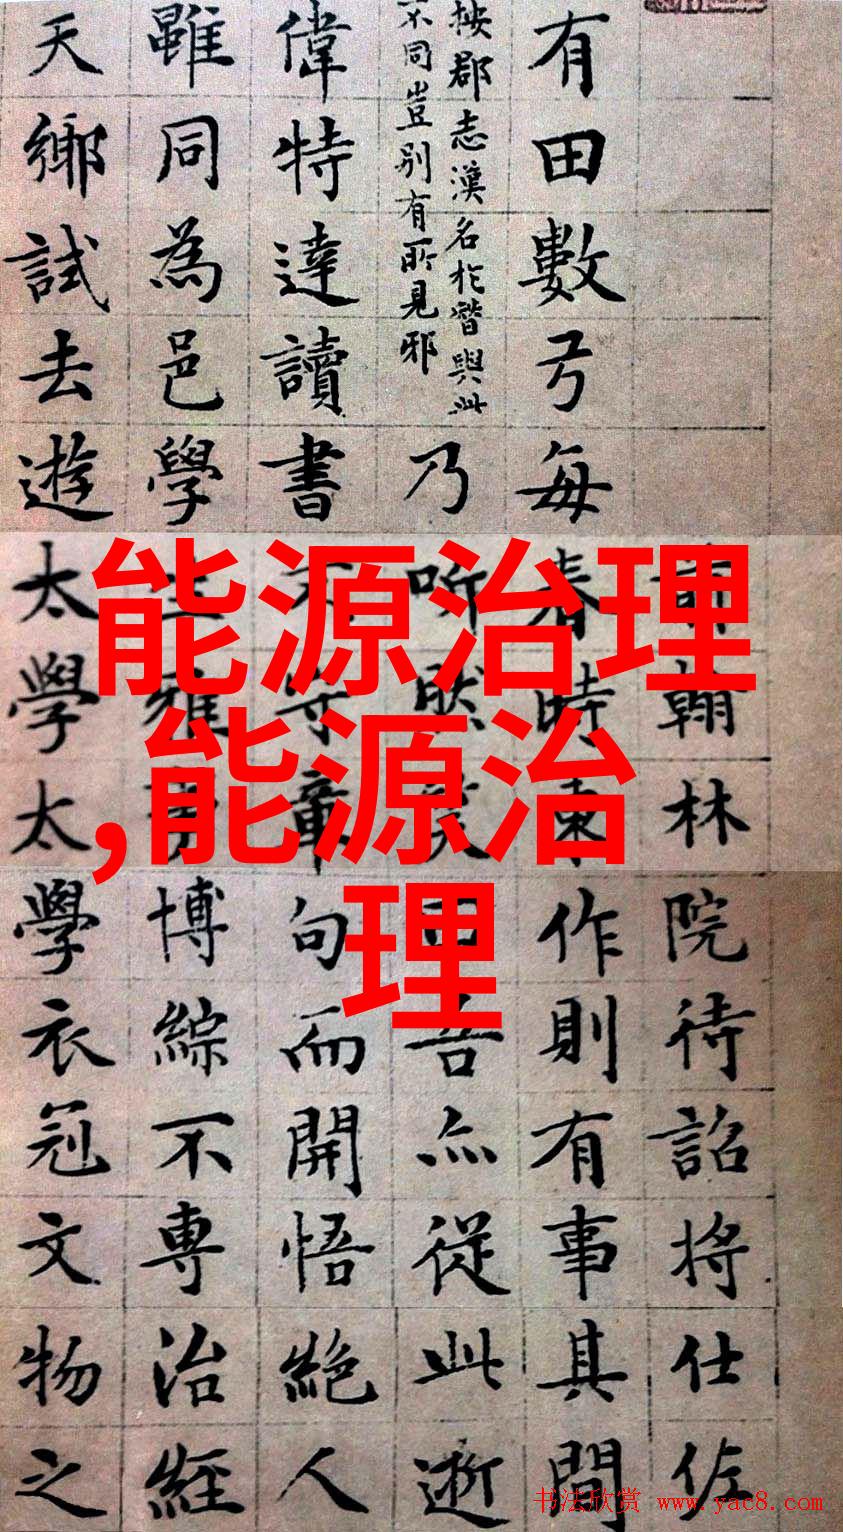 翰林院待詔將仕佐
有田數弓每春時東作則有事其間
按郡志漢名於與此
不同豈別有所見邪
乃听然笑吾亦從此逝
偉特達讀書不守章句而開悟絕人
雖同為邑學生雅博綜不專治經
天鄉試去遊太學太學衣冠文物之
能源治理
,能源治
理
书法欣赏 www.yac8.com